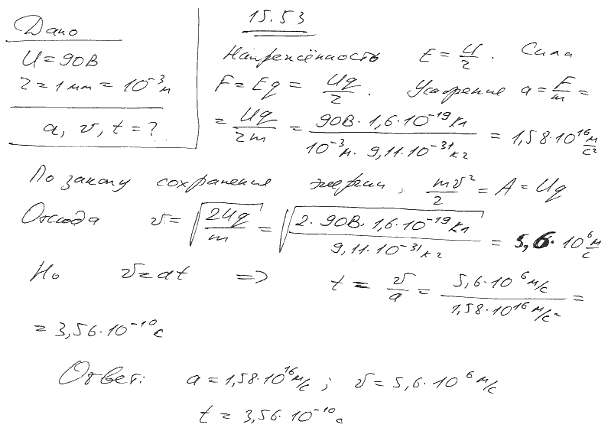 15.53
Дано
U = 90В
r = 1 мм = 10⁻³ м
a, v, t = ?
Напряжённость E = U/r. Сила
F = Eq = Uq/r. Ускорение a = F/m =
= Uq/rm = 90В · 1,6·10⁻¹⁹Кл / 10⁻³м · 9,11·10⁻³¹кг = 1,58·10¹⁶ м/с²
По закону сохранения энергии, mv²/2 = A = Uq
Отсюда v = √(2Uq/m) = √(2 · 90В · 1,6·10⁻¹⁹Кл / 9,11·10⁻³¹кг) = 5,6·10⁶ м/с
Но v = at => t = v/a = 5,6·10⁶ м/с / 1,58·10¹⁶ м/с² =
= 3,56·10⁻¹⁰ с
Ответ: a = 1,58·10¹⁶ м/с; v = 5,6·10⁶ м/с
t = 3,56·10⁻¹⁰ с